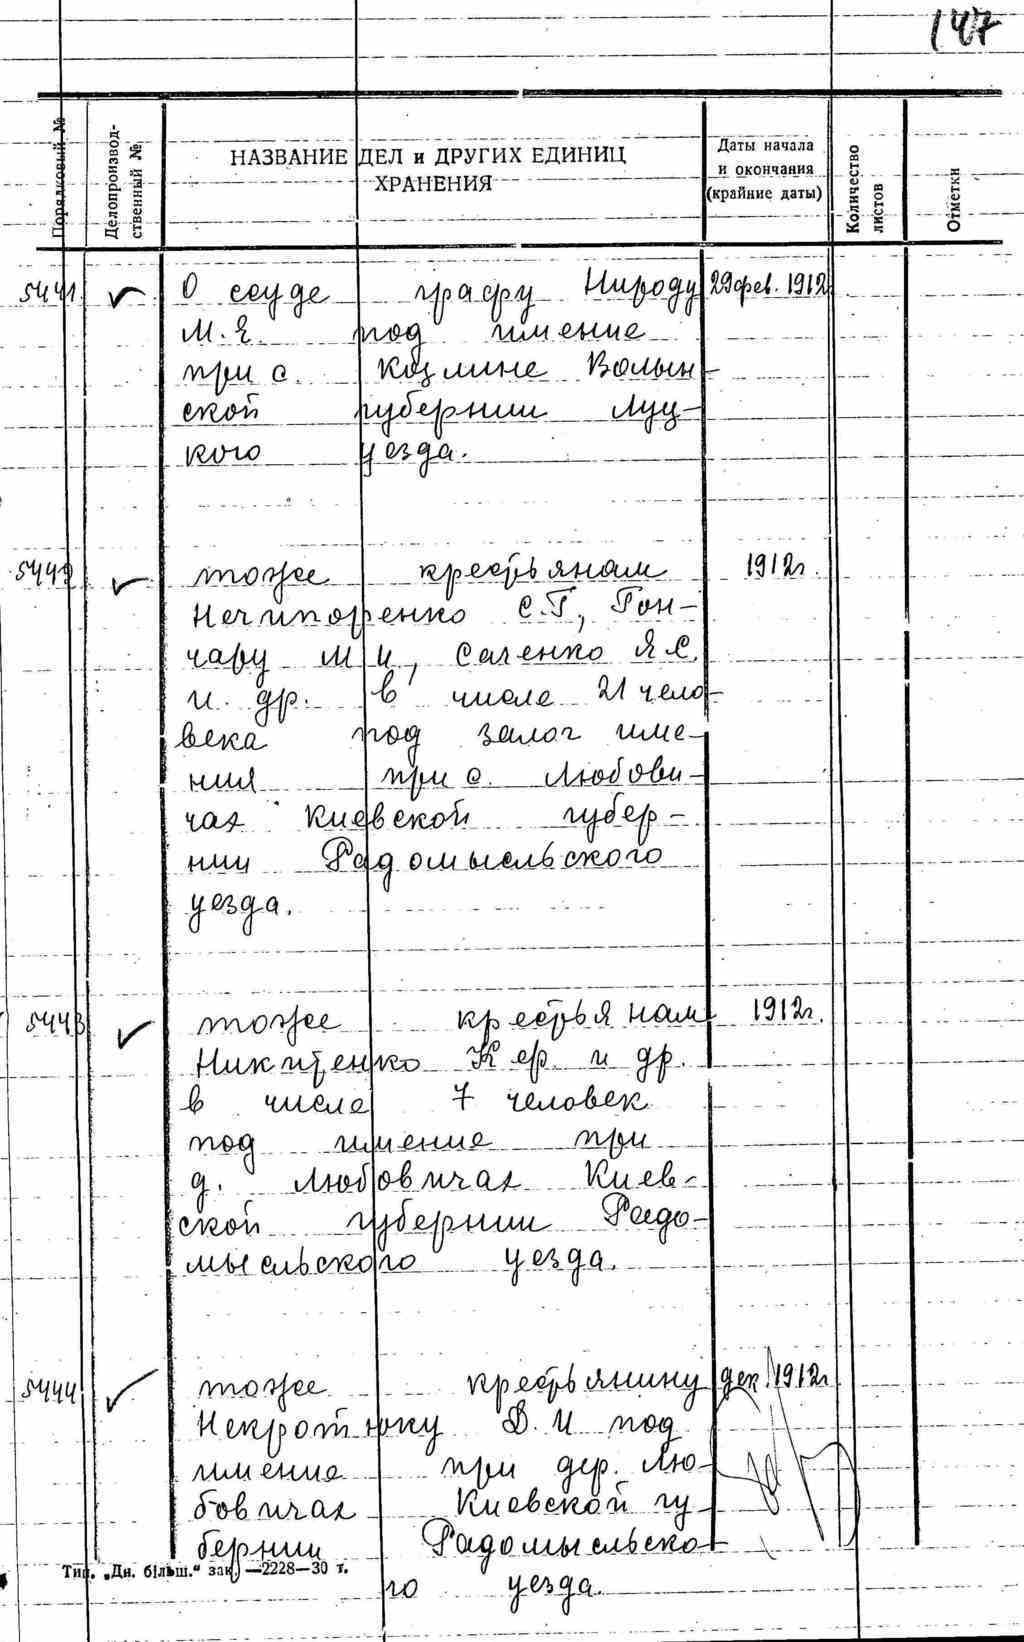 147
Порядковый №
Делопроизвод-
ственный №
НАЗВАНИЕ ДЕЛ и ДРУГИХ ЕДИНИЦ
ХРАНЕНИЯ
Даты начала
и окончания
(крайние даты)
Количество
листов
Отметки
5441 О ссуде графу Нироду 29 фев. 1912
М.Е. под имение
при с. Козлине Волын-
ской губернии Луц-
кого уезда.
5442 тоже крестьянам 1912г.
Нечипоренко С.Г, Гон-
чару М И, Саченко Я.С.
и др. в числе 21 чело-
века под залог име-
ния при с. Любови-
чах Киевской губер-
нии Радомысльского
уезда.
5443 тоже крестьянам 1912г.
Никитенко К еф. и др.
в числе 7 человек
под имение при
д. Любовичах Киев-
ской губернии Радо-
мысльского уезда.
5444 тоже крестьянину дек. 1912г
Некротюку Д.И под
имение при дер. Лю-
бовичах Киевской гу-
бернии Радомысльско-
Тип. „Дн. більш.“ зак. —2228—30 т.
го уезда.